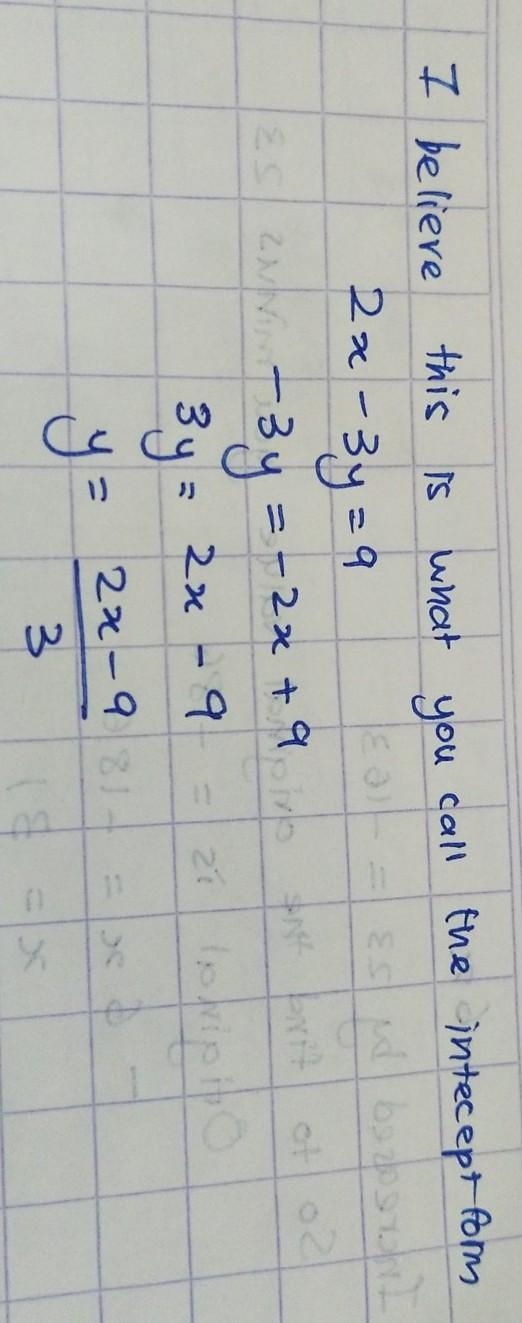 I believe this is what you call the intecept form
2x - 3y = 9
-3y = -2x + 9
3y = 2x - 9
y = 2x - 9
3